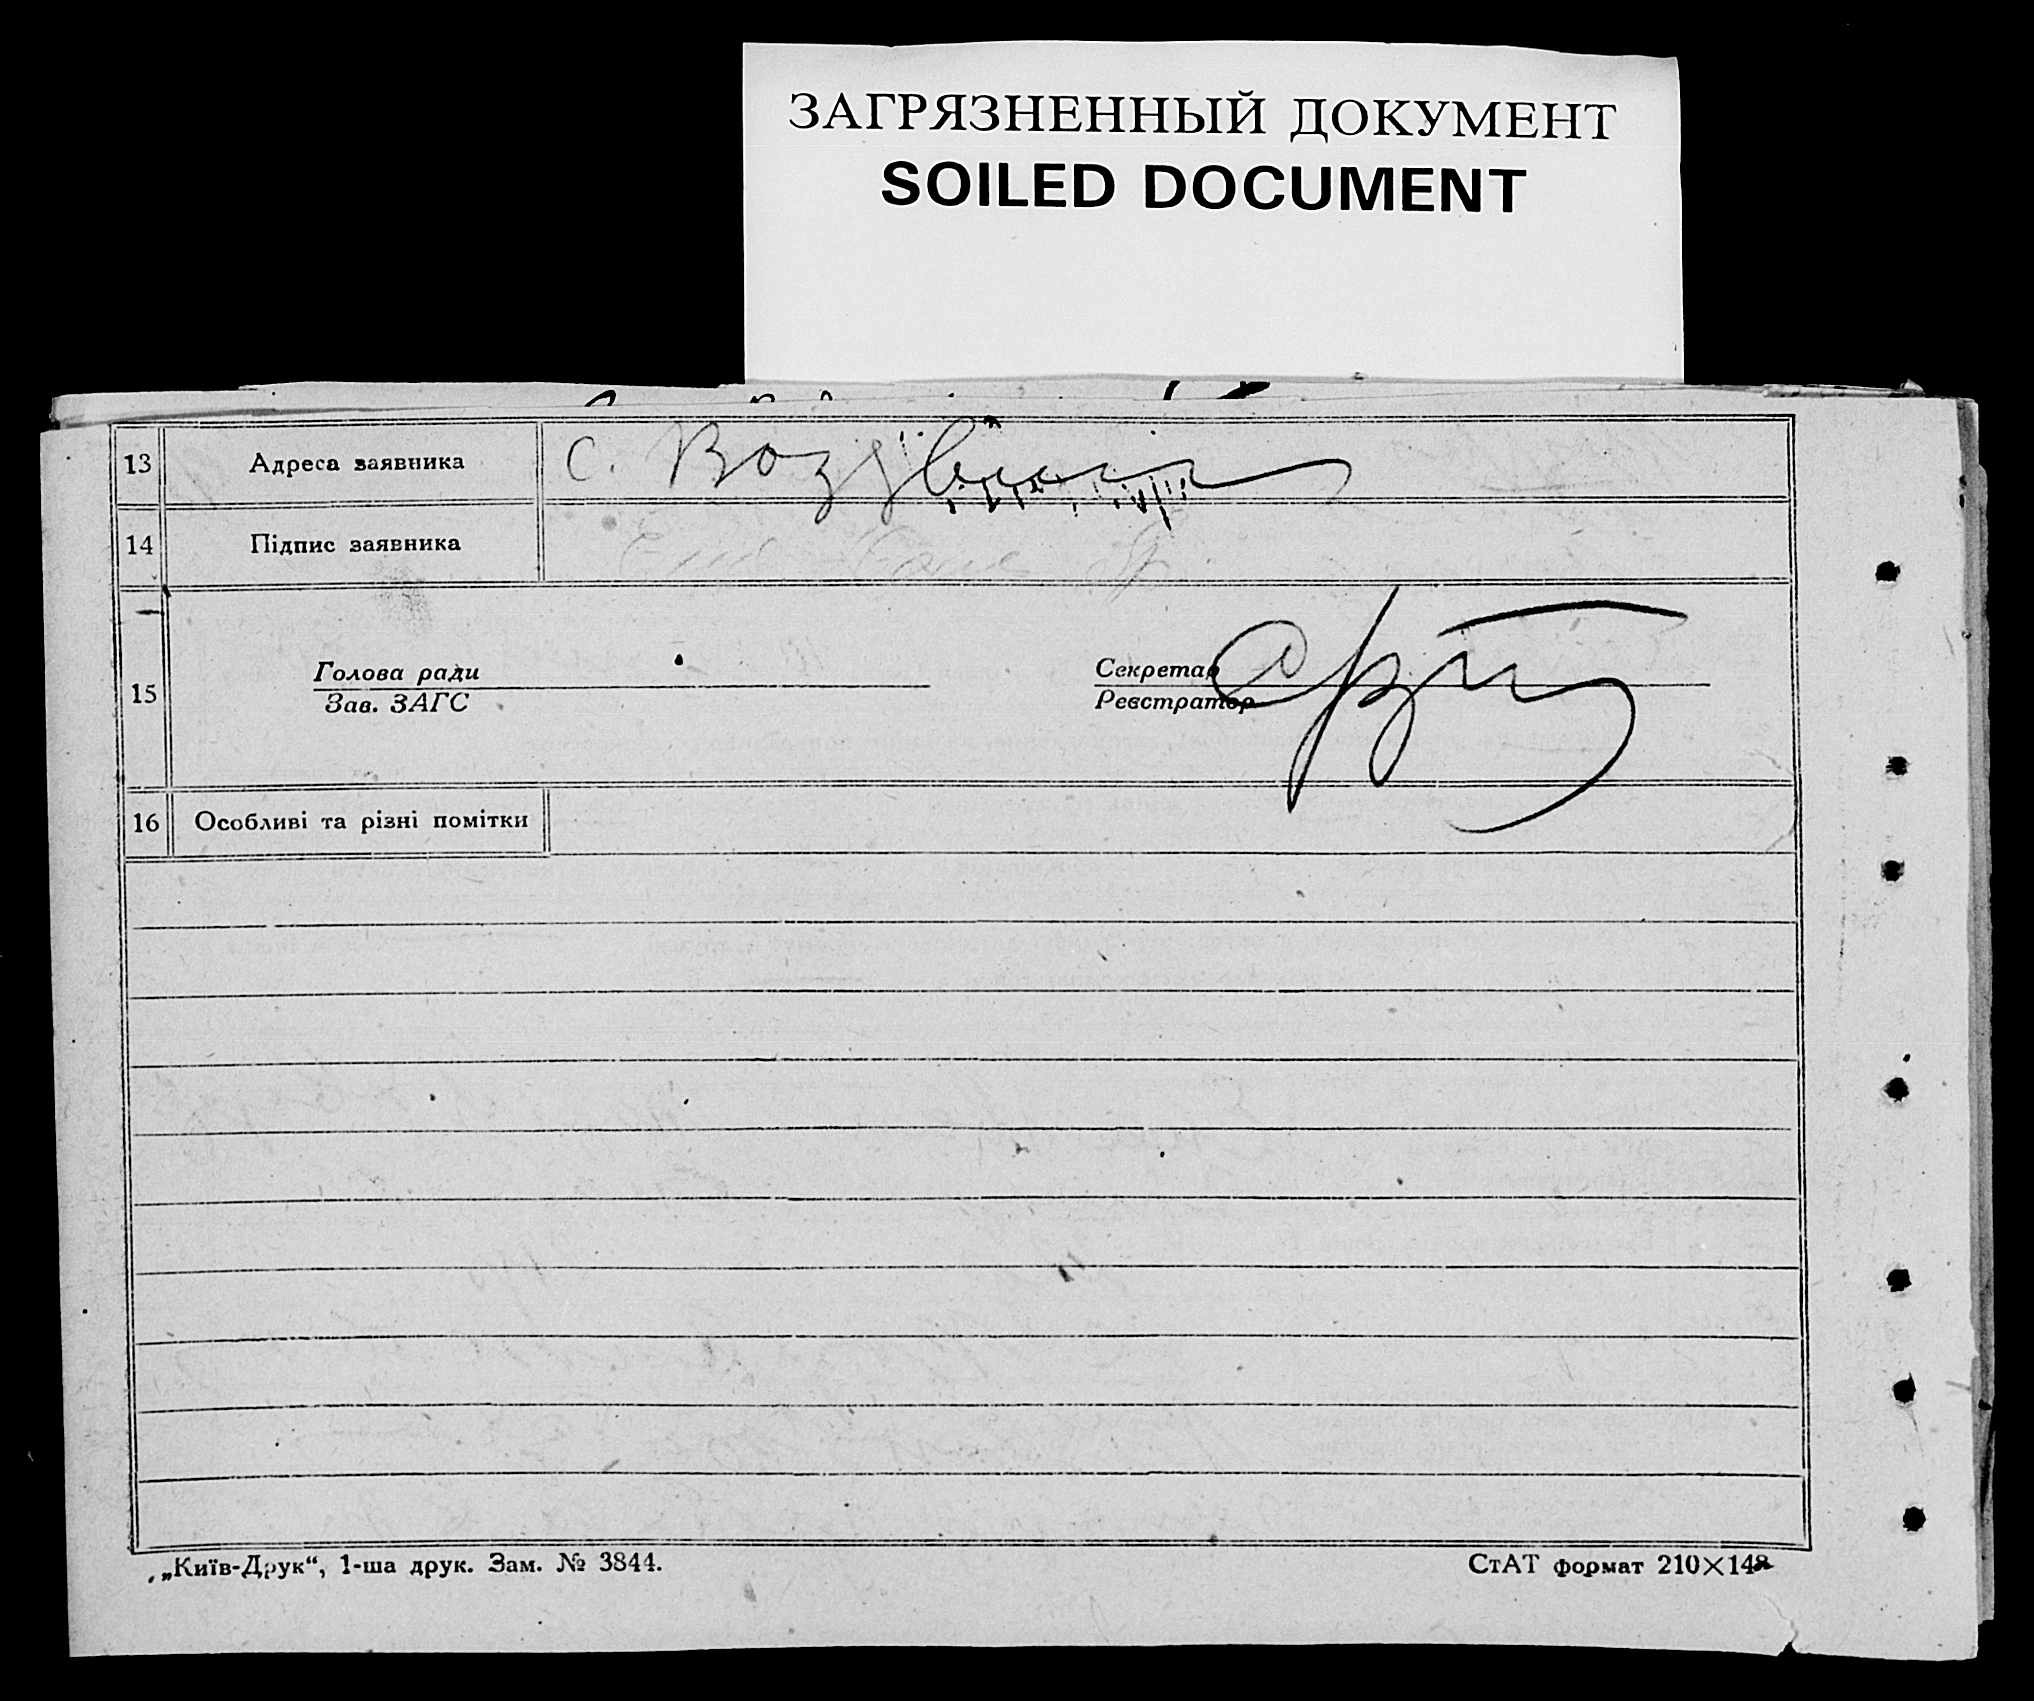 ЗАГРЯЗНЕННЫЙ ДОКУМЕНТ
SOILED DOCUMENT
13 Адреса заявника с.
14 Підпис заявника
15
Голова ради
Зав. ЗАГС
Секретар
Реєстратор
16 Особливі та різні помітки
„Київ-Друк“, 1-ша друк. Зам. № 3844.
СтАТ формат 210×148